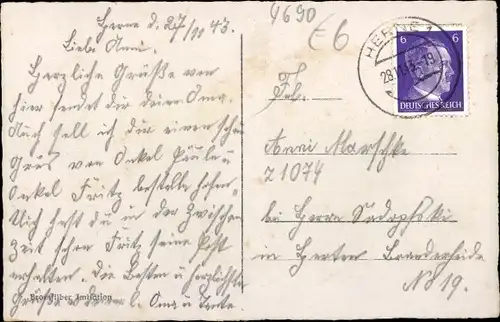 Herne d. 27/10 43.
Liebe Anni.
Herzliche Grüße von
hier sendet dir deine Oma.
Auch soll ich dir einen schön
Grus von Onkel Paule u
Onkel Fritz bestelle hofen-
tlich hast du in der Zwischen
Zeit schon Fritz seine Post
erhalten. Die Besten u herzlichste
Grüße deine l. Oma u Tante
Bromsilber Imitation
9690
E6
HERNE 1
28.10.43-19
6 6
DEUTSCHES REICH
Frl.
Anni Marschke
Z1074
bei Herrn
in Herten
No 19.